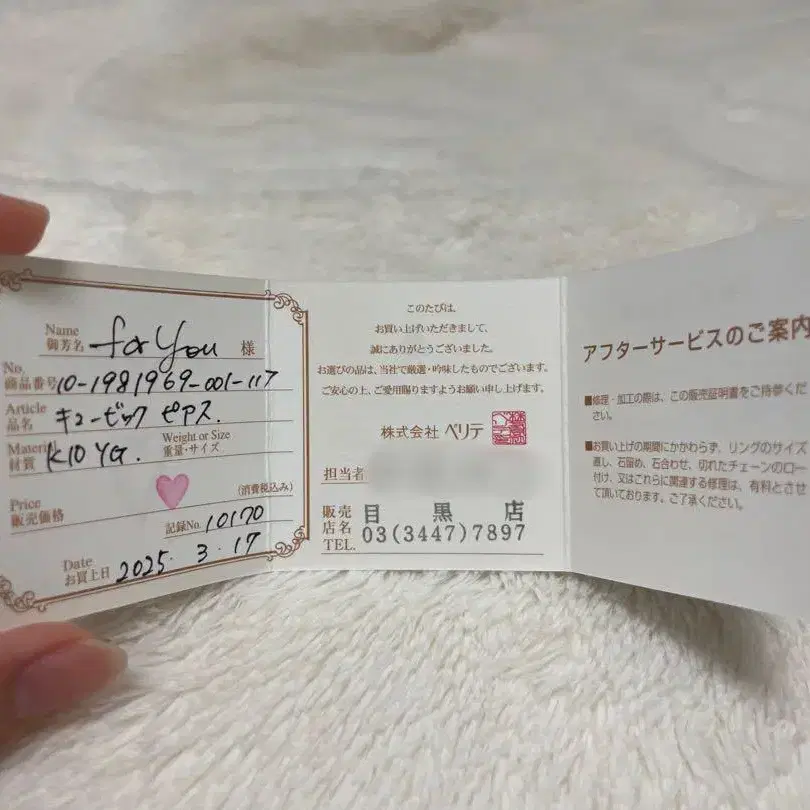 Name
御芳名 for You 様
No.
商品番号 10-1981969-001-117
Article
品名 キュービック ピアス.
Material Weight or Size
材質 K10 YG. 重量・サイズ
Price
販売価格 (消費税込み)
記録No. 10170
Date
お買上日 2025. 3. 17
このたびは、
お買い上げいただきまして、
誠にありがとうございました。
お選びの品は、当社で厳選・吟味したものでございます。
ご安心の上、ご愛用賜りますようお願い申し上げます。
株式会社 ベリテ
担当者
販売店名 目黒店
TEL. 03(3447)7897
アフターサービスのご案内
■修理・加工の際は、この販売証明書をご持参くだ
さい。
■お買い上げの期間にかかわらず、リングのサイズ
直し、石留め、石合わせ、切れたチェーンのロー
付け、又はこれらに関連する修理は、有料とさせ
て頂いております。ご了承ください。